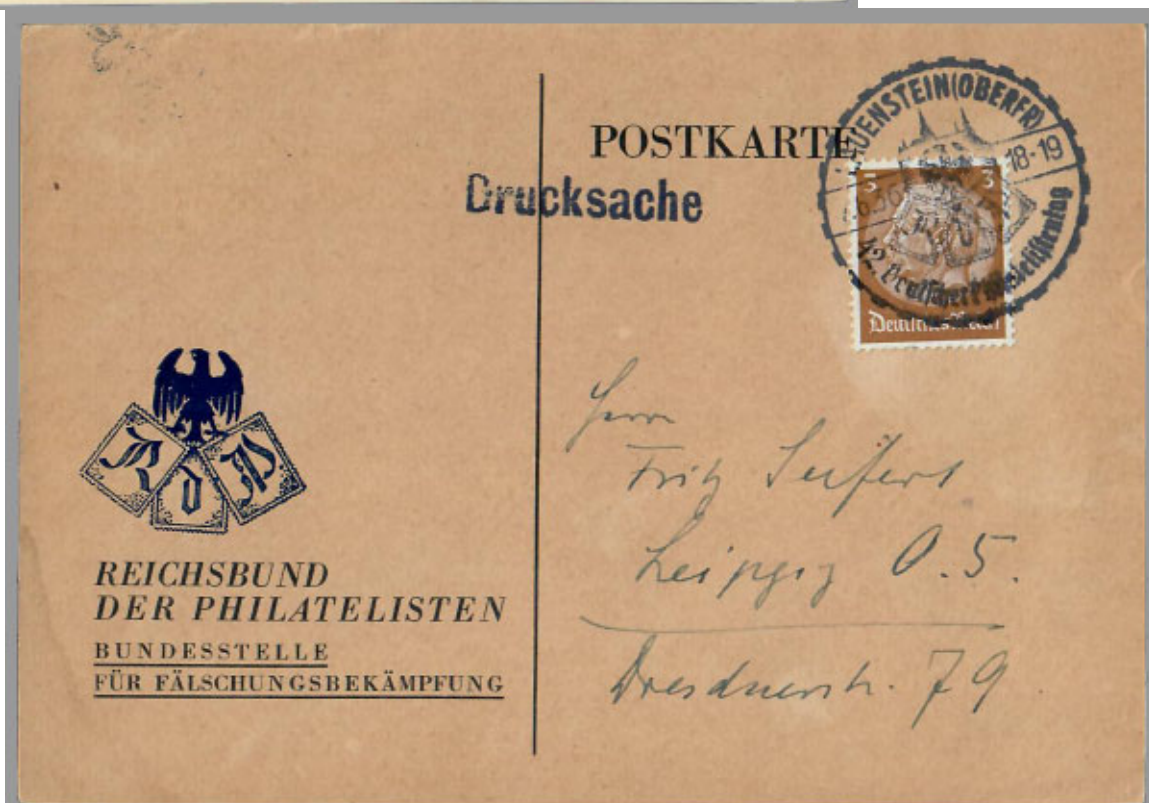 POSTKARTE
Drucksache
LAUENSTEIN (OBERFR)
18-19
42. Deutscher Philatelistentag
3 3
Deutsches Reich
R d P
REICHSBUND
DER PHILATELISTEN
BUNDESSTELLE
FÜR FÄLSCHUNGSBEKÄMPFUNG
Herrn
Fritz Seifert
Leipzig O. 5.
Dresdnerstr. 79